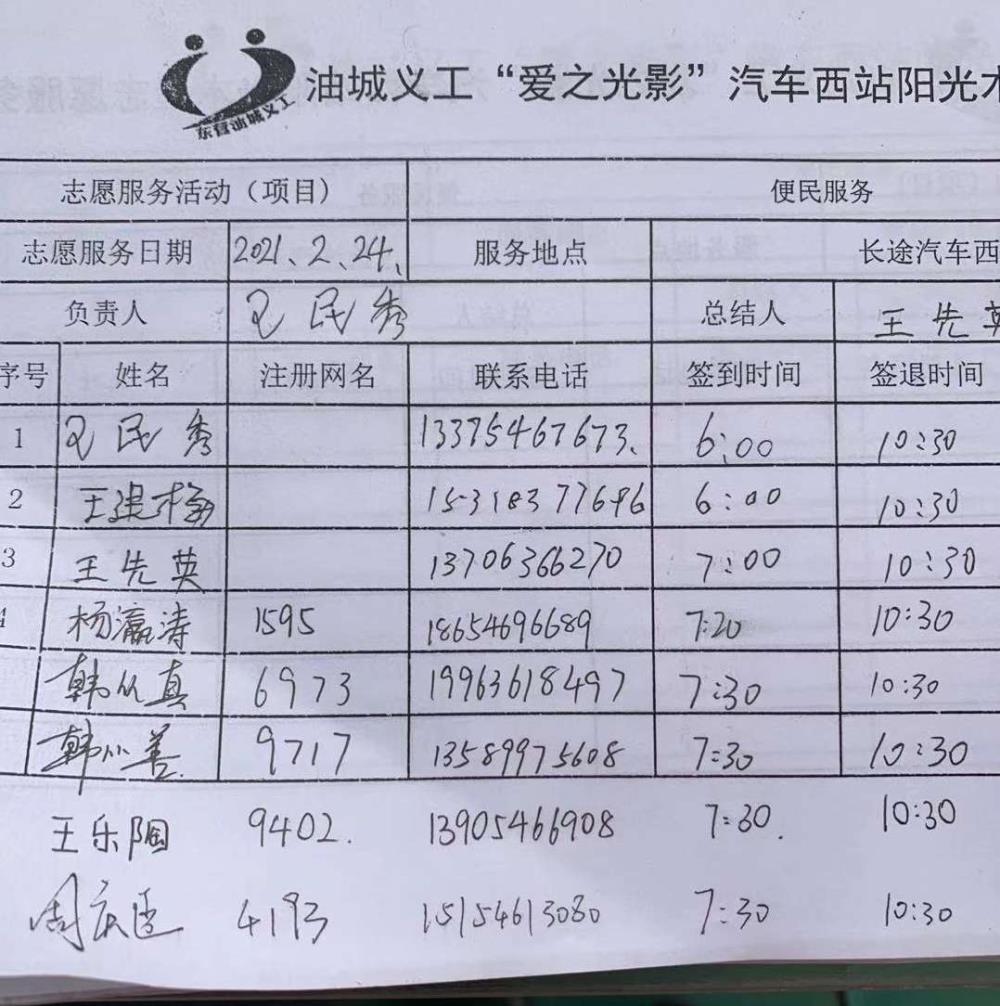 东营油城义工
油城义工“爱之光影”汽车西站阳光木
志愿服务活动（项目） 便民服务
志愿服务日期 2021、2、24、 服务地点 长途汽车西
负责人 民秀 总结人 王先英
序号 姓名 注册网名 联系电话 签到时间 签退时间
1 民秀 13375467673、 6:00 10:30
2 王建梅 15318377686 6:00 10:30
3 王先英 13706366270 7:00 10:30
4 杨瀛涛 1595 18654696689 7:20 10:30
韩从真 6973 19963618497 7:30 10:30
韩从善 9717 13589975608 7:30 10:30
王乐陶 9402. 13905466908 7:30. 10:30
周庆臣 4193 15154613080 7:30 10:30